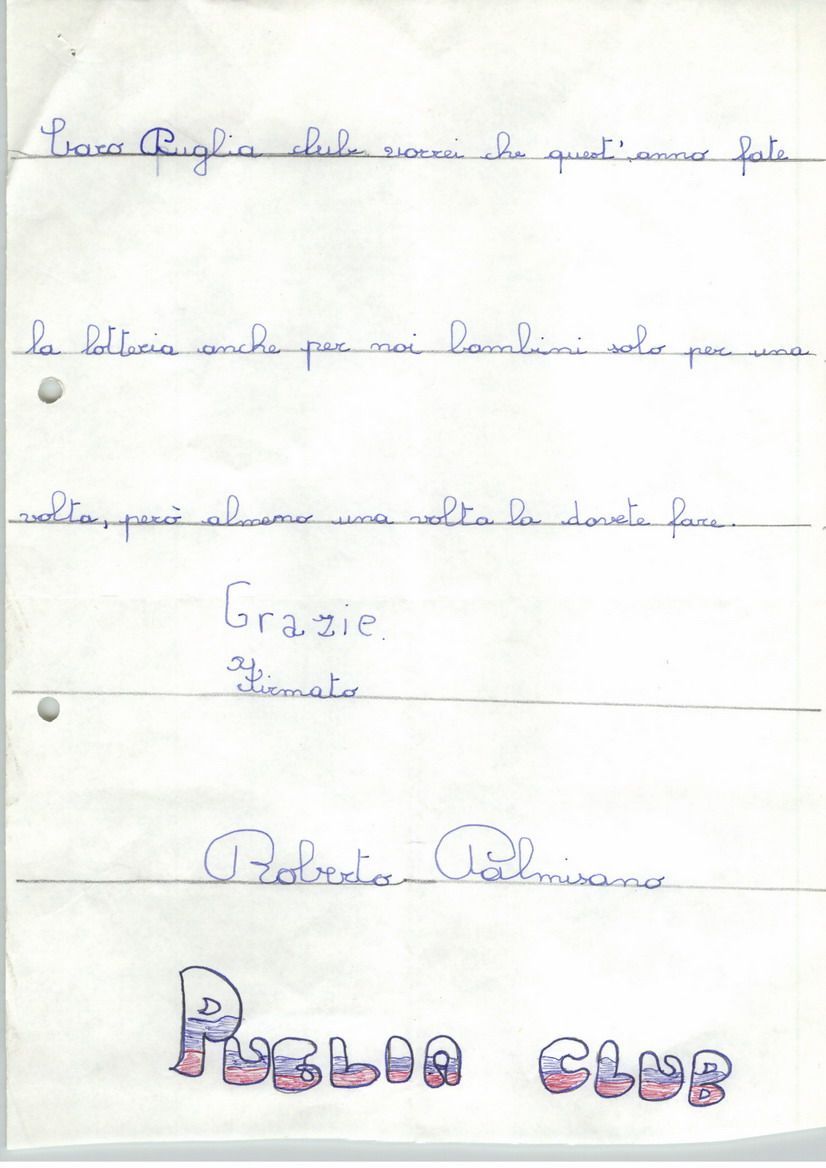 Caro Puglia club vorrei che quest'anno fate
la lotteria anche per noi bambini solo per una
volta, però almeno una volta la dovete fare.
Grazie.
Firmato
Roberto Palmisano
PUGLIA CLUB